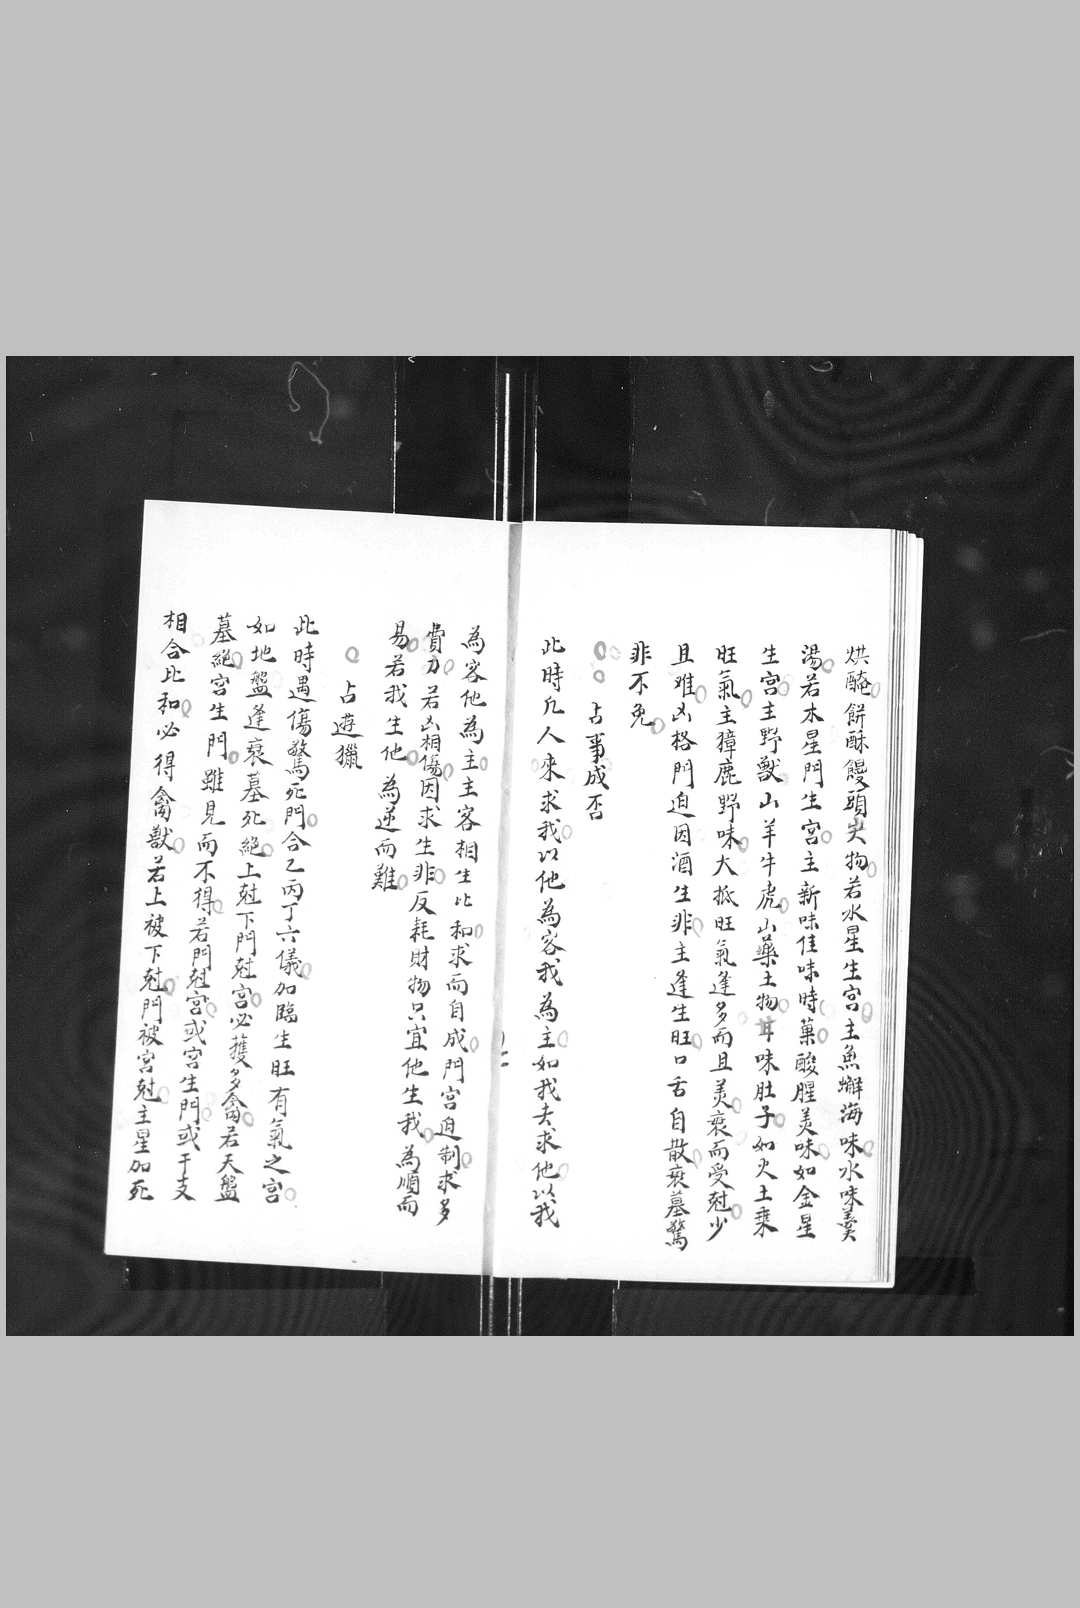 烘醃餅酥饅頭尖物若水星生宮主魚蠏海味水味羹
湯若木星門生宮主新味佳味時菓酸腥美味如金星
生宮主野獸山羊牛虎山藥土物甘味肚子如火土乘
旺氣主獐鹿野味大抵旺氣逢多而且美衰而受尅少
且难凶格門迫因酒生非主逢生旺口舌自散衰墓驚
非不免
占事成否
此時凢人來求我以他為客我為主如我去求他以我
為客他為主主客相生比和求而自成門宮迫制求多
費力若凶相傷因求生非反耗財物只宜他生我為順而
易若我生他為逆而難
占遊獵
此時遇傷驚死門合乙丙丁六儀加臨生旺有氣之宮
如地盤逢衰墓死絕上尅下門尅宮必獲多禽若天盤
墓絕宮生門雖見而不得若門尅宮或宮生門或干支
相合比和必得禽獸若上被下尅門被宮尅主星加死